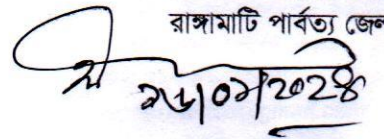 রাঙ্গামাটি পার্বত্য জেল
২৬/০১/২০২৪